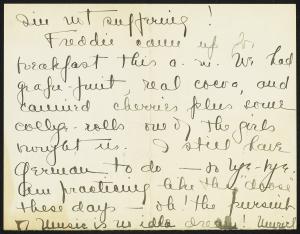 I'm not suffering!
Freddie came up for
breakfast this a.m. We had
grape-fruit, real cocoa, and
canned cherries plus some
college-rolls one of the girls
brought us. I still have
German to do — so bye-bye.
Am practising like the "deuce"
these days — oh! the pursuit
of Music is no idle dream!